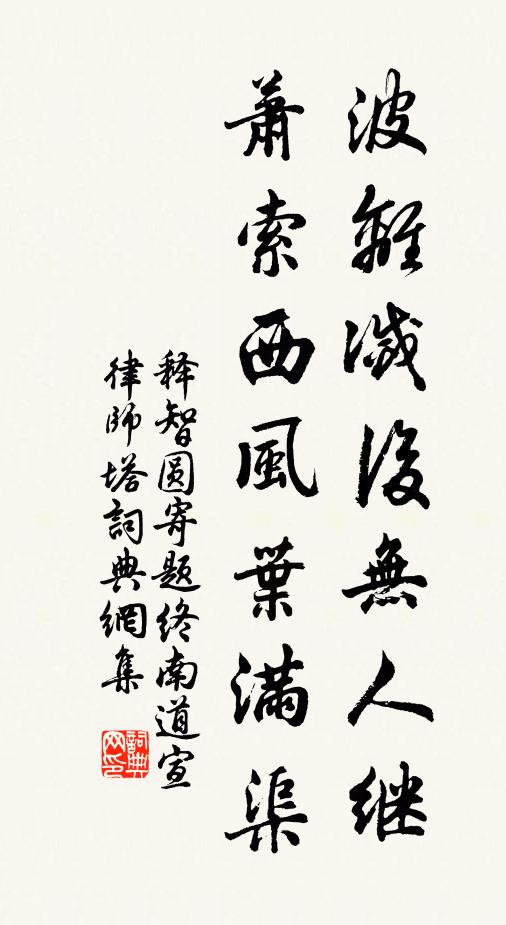 波離滅後無人继
蕭索西風葉滿渠
释智圆寄题终南道宣
律師塔詞典網集
詞典网印